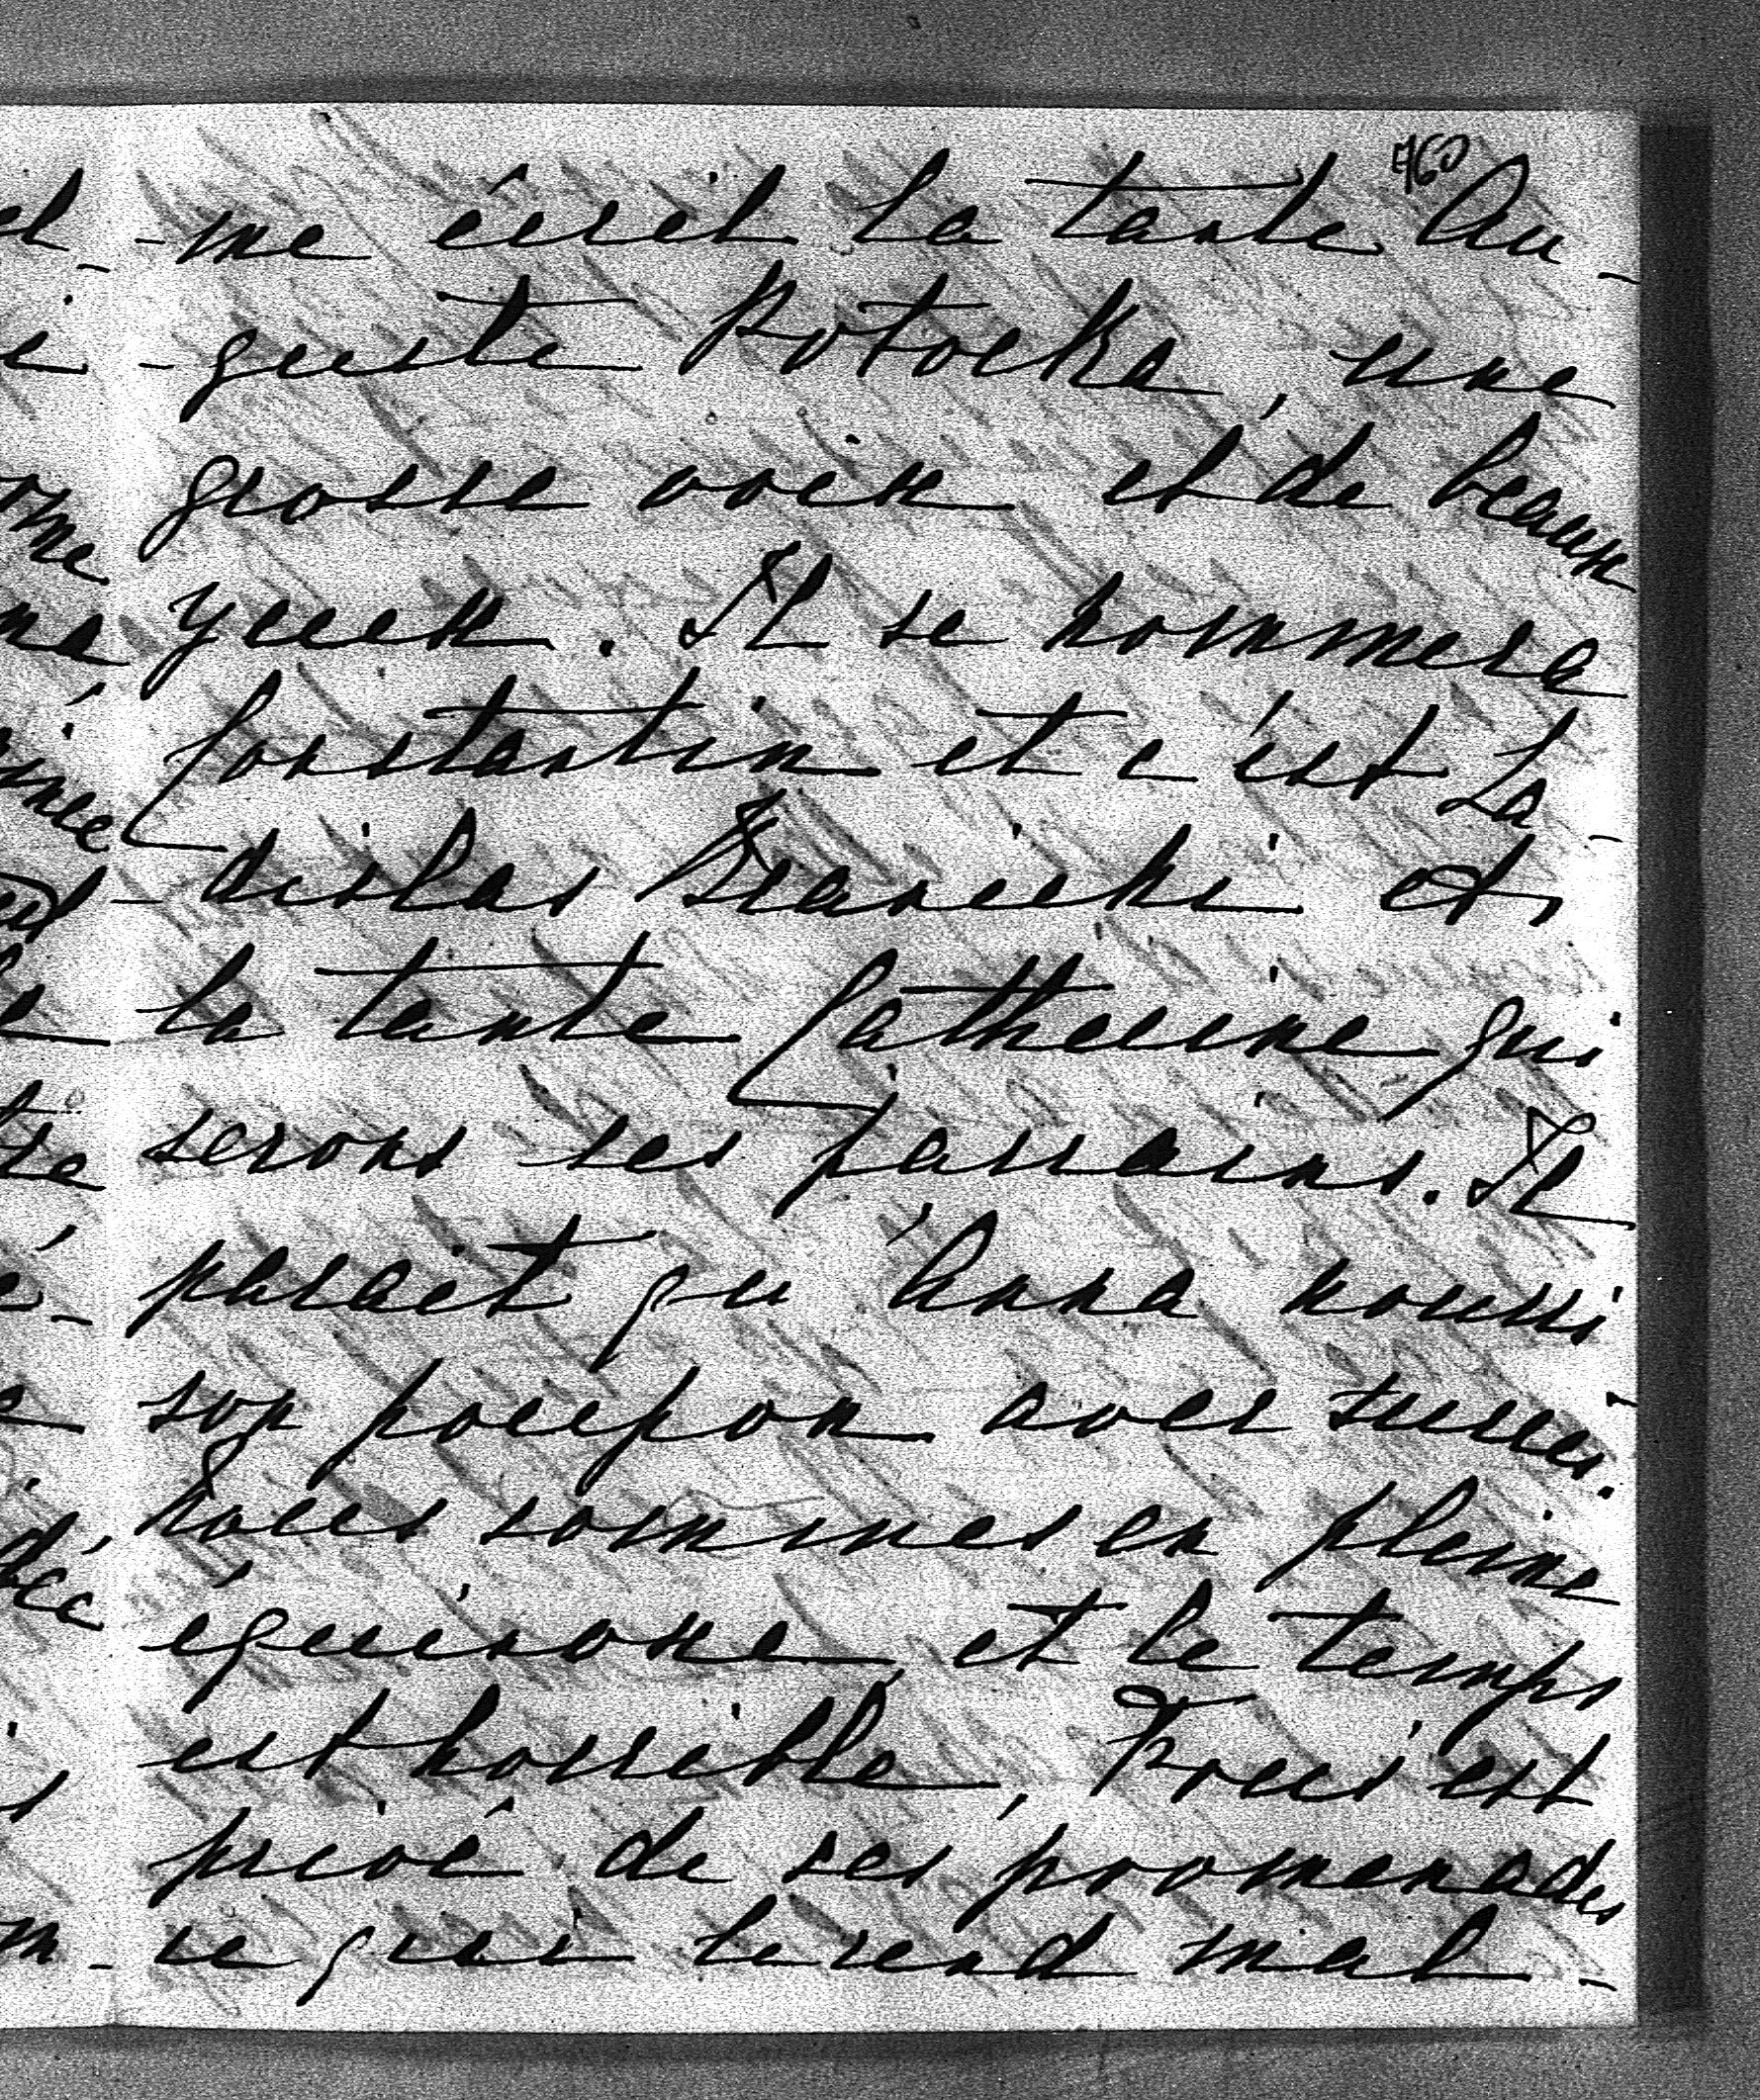 760
-me écrit la tante Au-
-guste Potocka, une
grosse voix et de beaux
yeux. Il se nommera
Constantin et c'est La-
-dislas Krasicki et
la tante Catherine qui
serons ses parrains. Il
parait qu'Anna nourri
son poupon avec succès.
Nous sommes en pleine
équinoxe, et le temps
est horrible,
est
privé de ses promenades
ce qui le rend mal-